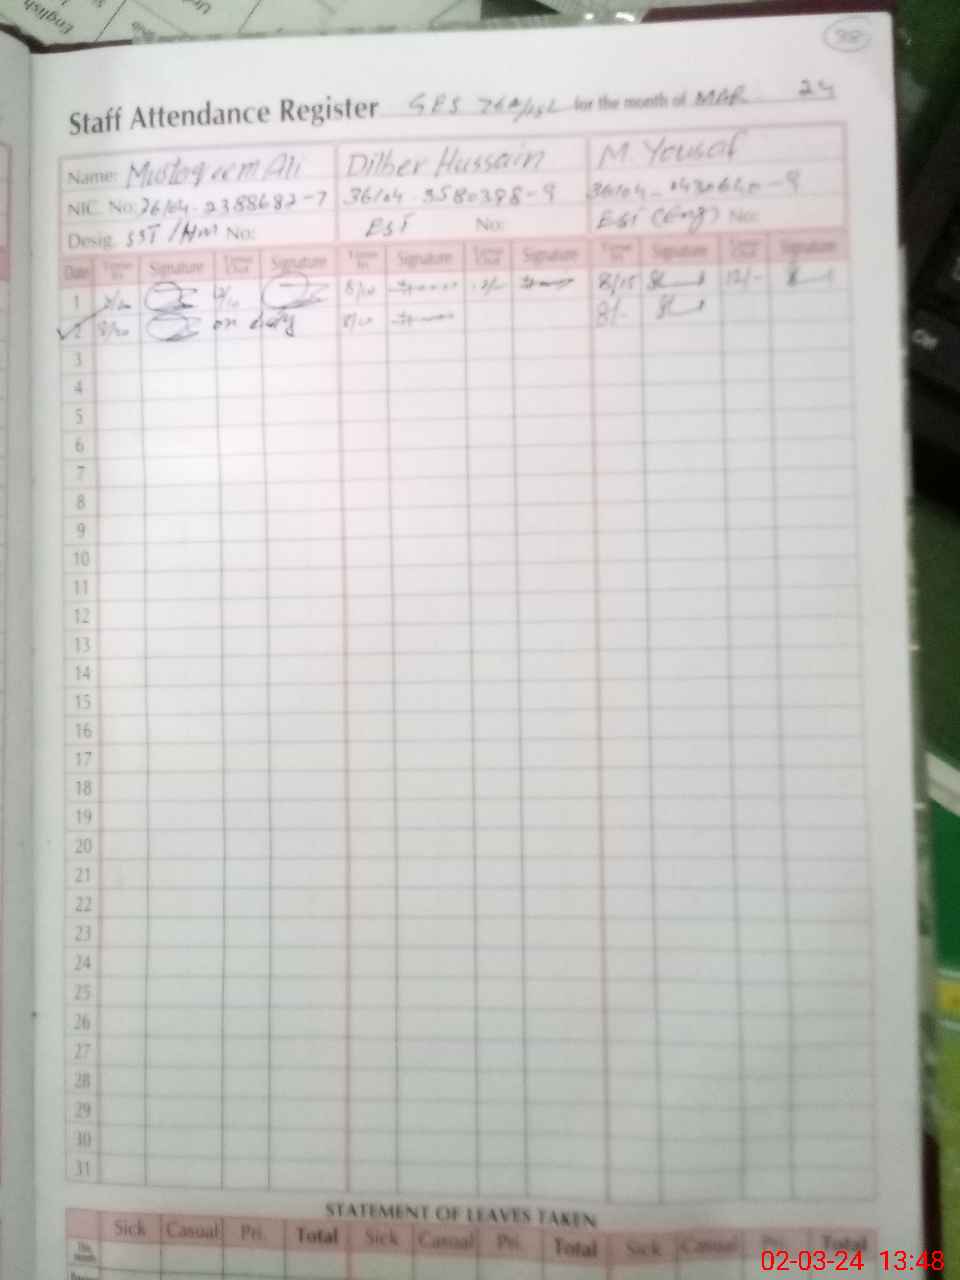 English
98
Staff Attendance Register GES for the month of MAR 24
Name: Mustaqeem Ali Dilber Hussain M. Yousaf
NIC. No: 36104-2388682-7 36104-3580398-9 36104-0430640-9
Desig. SST / HM No: EST No: EST (Eng) No:
Date Time In Signature Time Out Signature Time In Signature Time Out Signature Time In Signature Time Out Signature
1 8/10 12/- 8/15 12/-
2 on duty 8/10 8/-
3
4
5
6
7
8
9
10
11
12
13
14
15
16
17
18
19
20
21
22
23
24
25
26
27
28
29
30
31
STATEMENT OF LEAVES TAKEN
Sick Casual Pri. Total Sick Casual Pri. Total Sick Casual Pri. Total
02-03-24 13:48